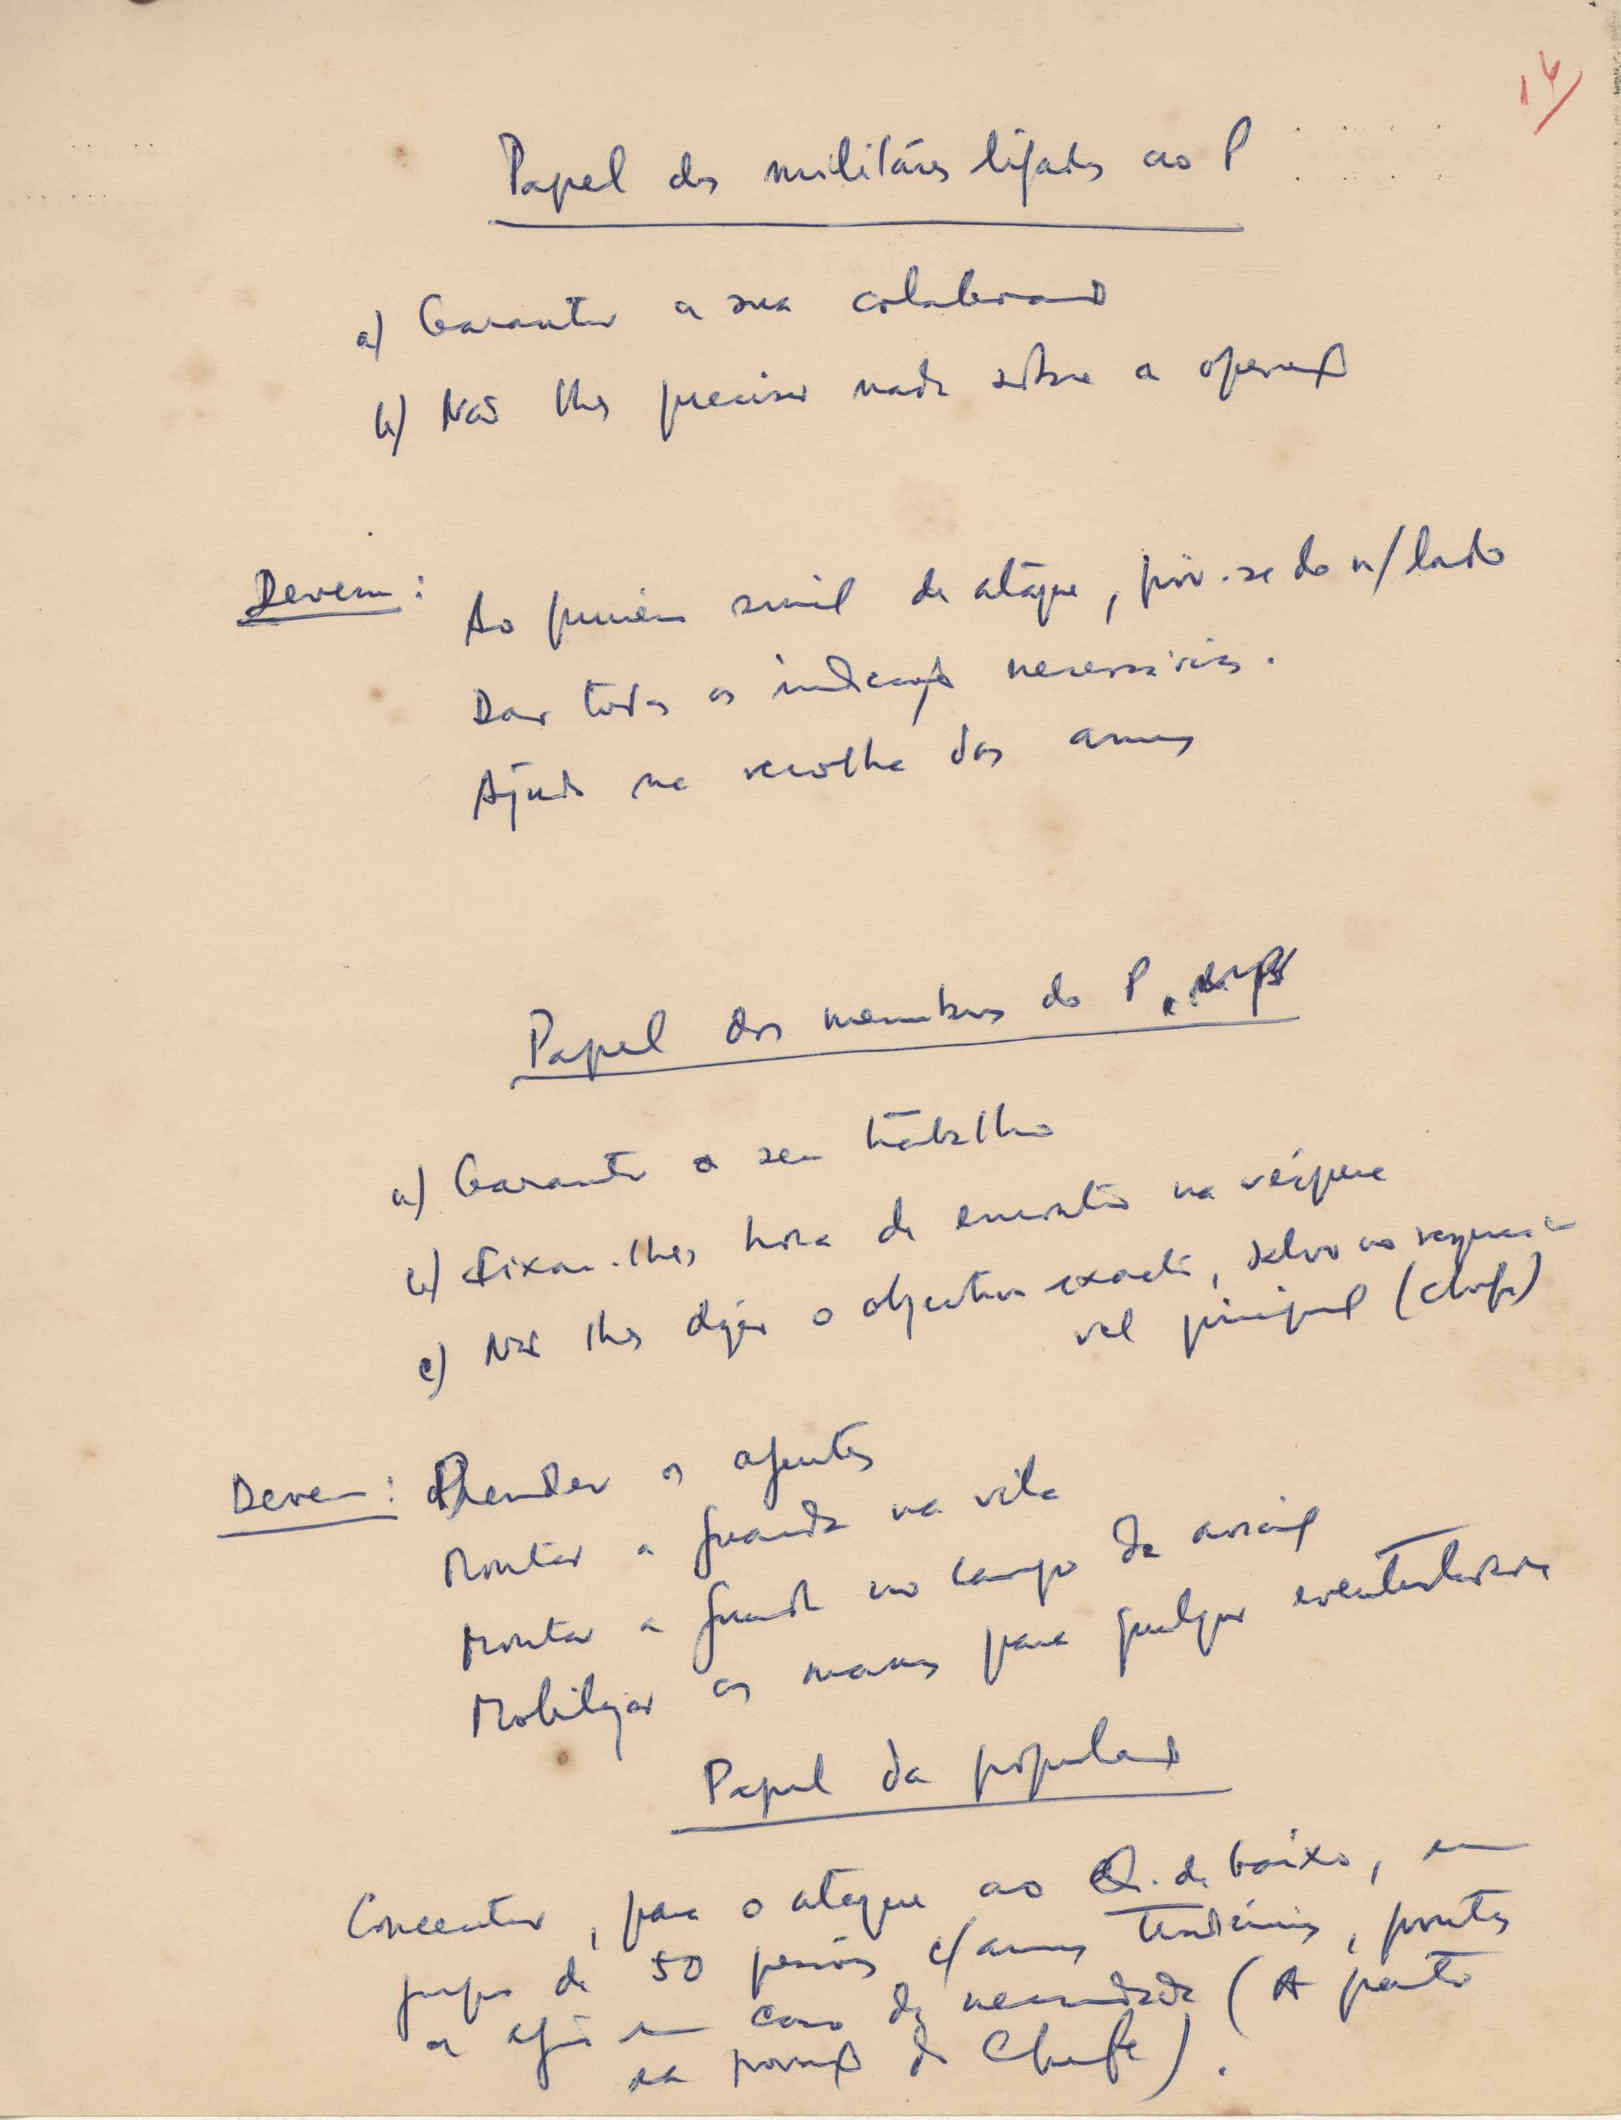 14
Papel dos militares ligados ao P
a) Garantir a sua colaboração
b) Não lhes precisar nada sobre a operação
Devem: Ao primeiro sinal de ataque, pôr-se do n/lado
Dar todas as indicações necessárias.
Ajuda na recolha das armas
Papel dos membros do P.
a) Garantir o seu trabalho
b) Fixar-lhes hora de encontro na véspera
c) Não lhes dizer o objectivo exacto, salvo ao responsá-
vel principal (chefe)
Devem: Prender os agentes
Montar a guarda na vila
Montar a guarda no campo de aviação
Mobilizar as massas para qualquer eventualidade
Papel da população
Concentrar, para o ataque ao Q. de baixo, um
grupo de 50 pessoas c/armas tradicionais, prontas
a agir em caso de necessidade (A parte
da povoação do Chefe).